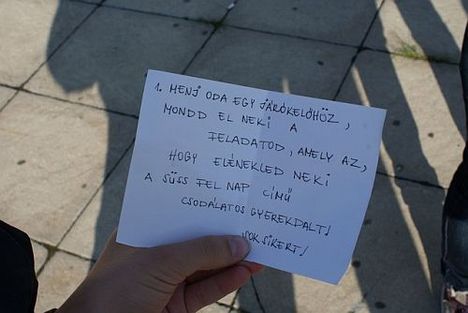 1. MENJ ODA EGY JÁRÓKELŐHÖZ,
MONDD EL NEKI A
FELADATOD, AMELY AZ,
HOGY ELÉNEKLED NEKI
A SÜSS FEL NAP CÍMŰ
CSODÁLATOS GYEREKDALT!
SOK SIKERT!